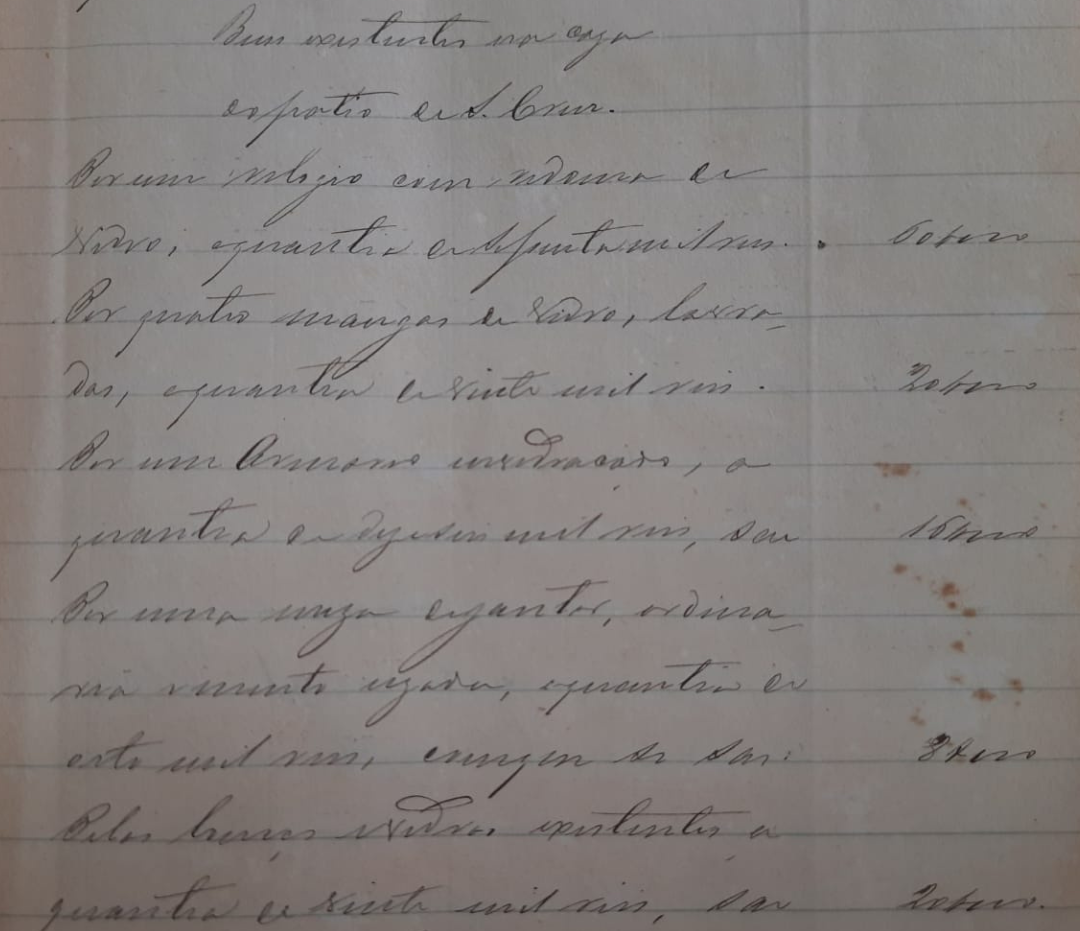 Bens existentes na caza
do patio de S. Cruz.
Por um relogio com redoma de
vidro, a quantia de sessenta mil reis. 60$000
Por quatro mangas de vidro, lavra-
das, a quantia de vinte mil reis. 20$000
Por um Armario envidraçado, a
quantia de dezeseis mil reis, sae 16$000
Por uma meza de jantar, ordina-
ria e muito uzada, a quantia de
oito mil reis, com que se sae: 8$000
Pelas louças e vidros existentes a
quantia de vinte mil reis, sae 20$000.